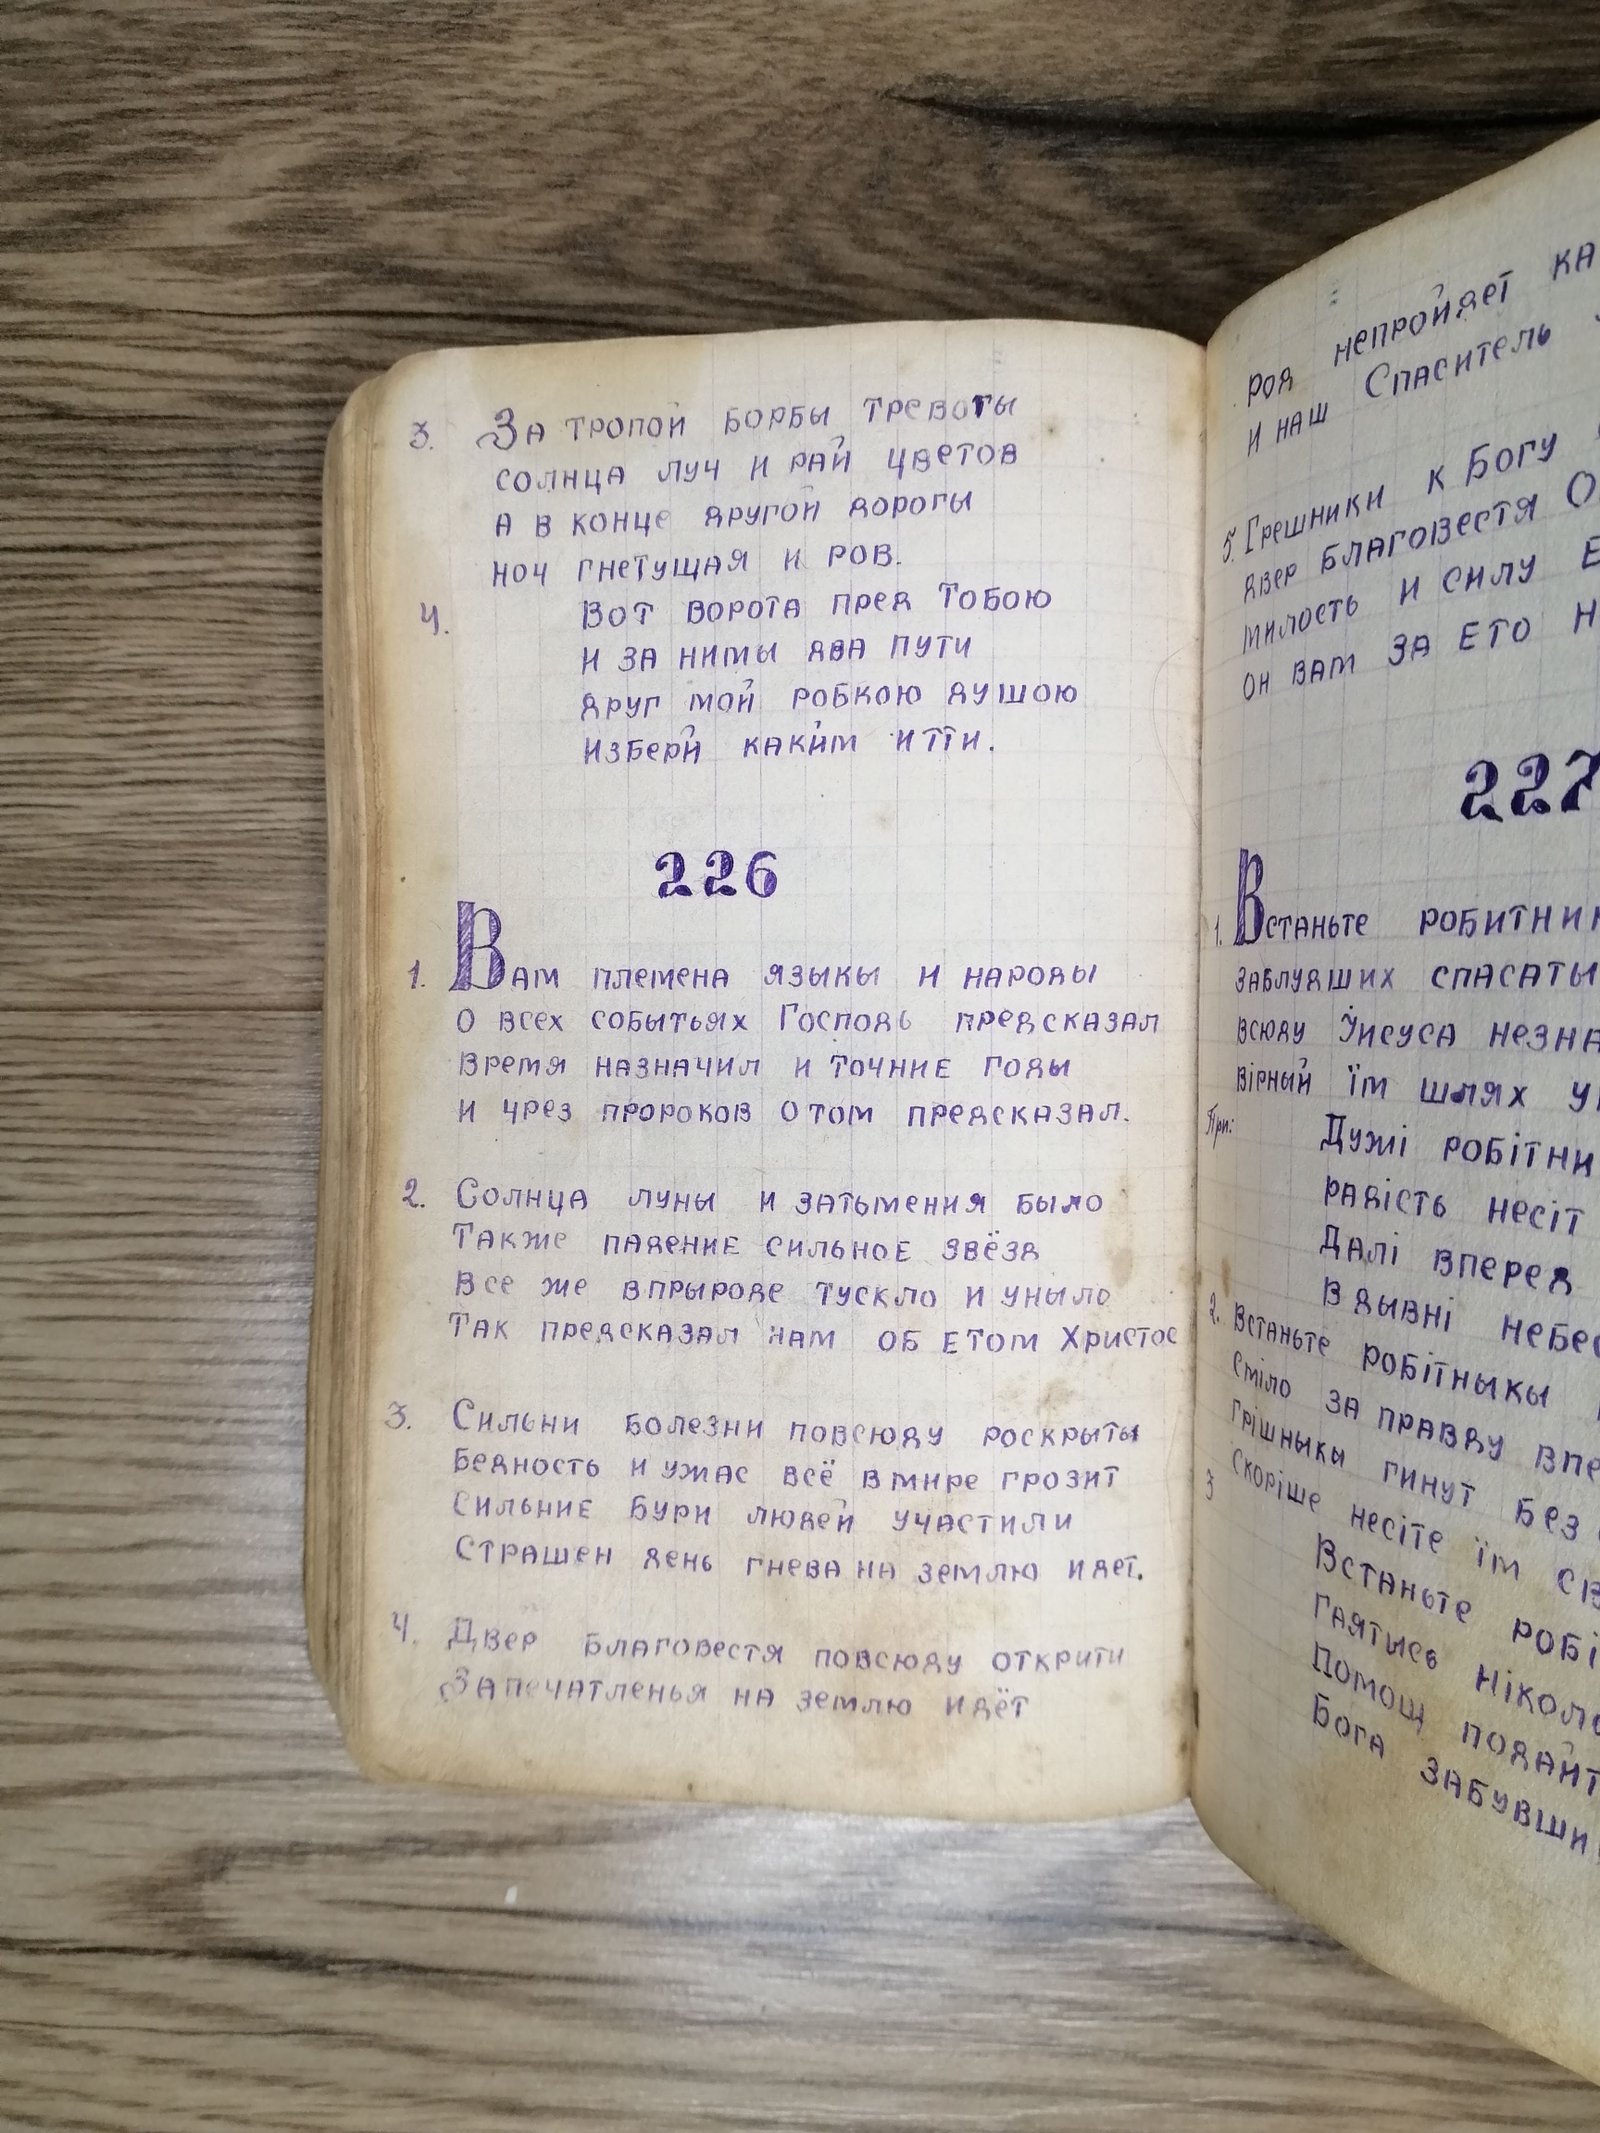 3. За тропой борбы тревоги
солнца луч и рай цветов
а в конце другой дорогы
ноч гнетущая и ров.
4. Вот ворота пред тобою
и за нимы два пути
друг мой робкою душою
избери каким итти.
226
1. Вам племена языкы и народы
о всех событьях Господь предсказал
время назначил и точние годы
и чрез пророков о том предсказал.
2. Солнца луны и затьмения было
Также падение сильное звёзд
Все же в прыроде тускло и уныло
Так предсказал нам об етом Христос
3. Сильни болезни повсюду роскрыты
Бедность и ужас всё в мире грозит
Сильние бури людей участили
Страшен день гнева на землю идет.
4. Двер благовестя повсюду открити
Запечатленья на землю идёт
род непройдет ка
и наш Спаситель
5. Грешники к Богу
двер благовестя О
милость и силу Е
он вам за ето н
227
1. Встаньте робитник
заблудших спасаты
всюду Йисуса незна
вірный їм шлях у
При: Дужі робітни
радість несіт
Далі вперед
в дывні небес
2. Встаньте робітныкы
сміло за правду впе
грішныкы гинут без
скоріше несіте їм св
3 Встаньте робі
гаятысь ніколо
Помощ подайт
Бога забувши